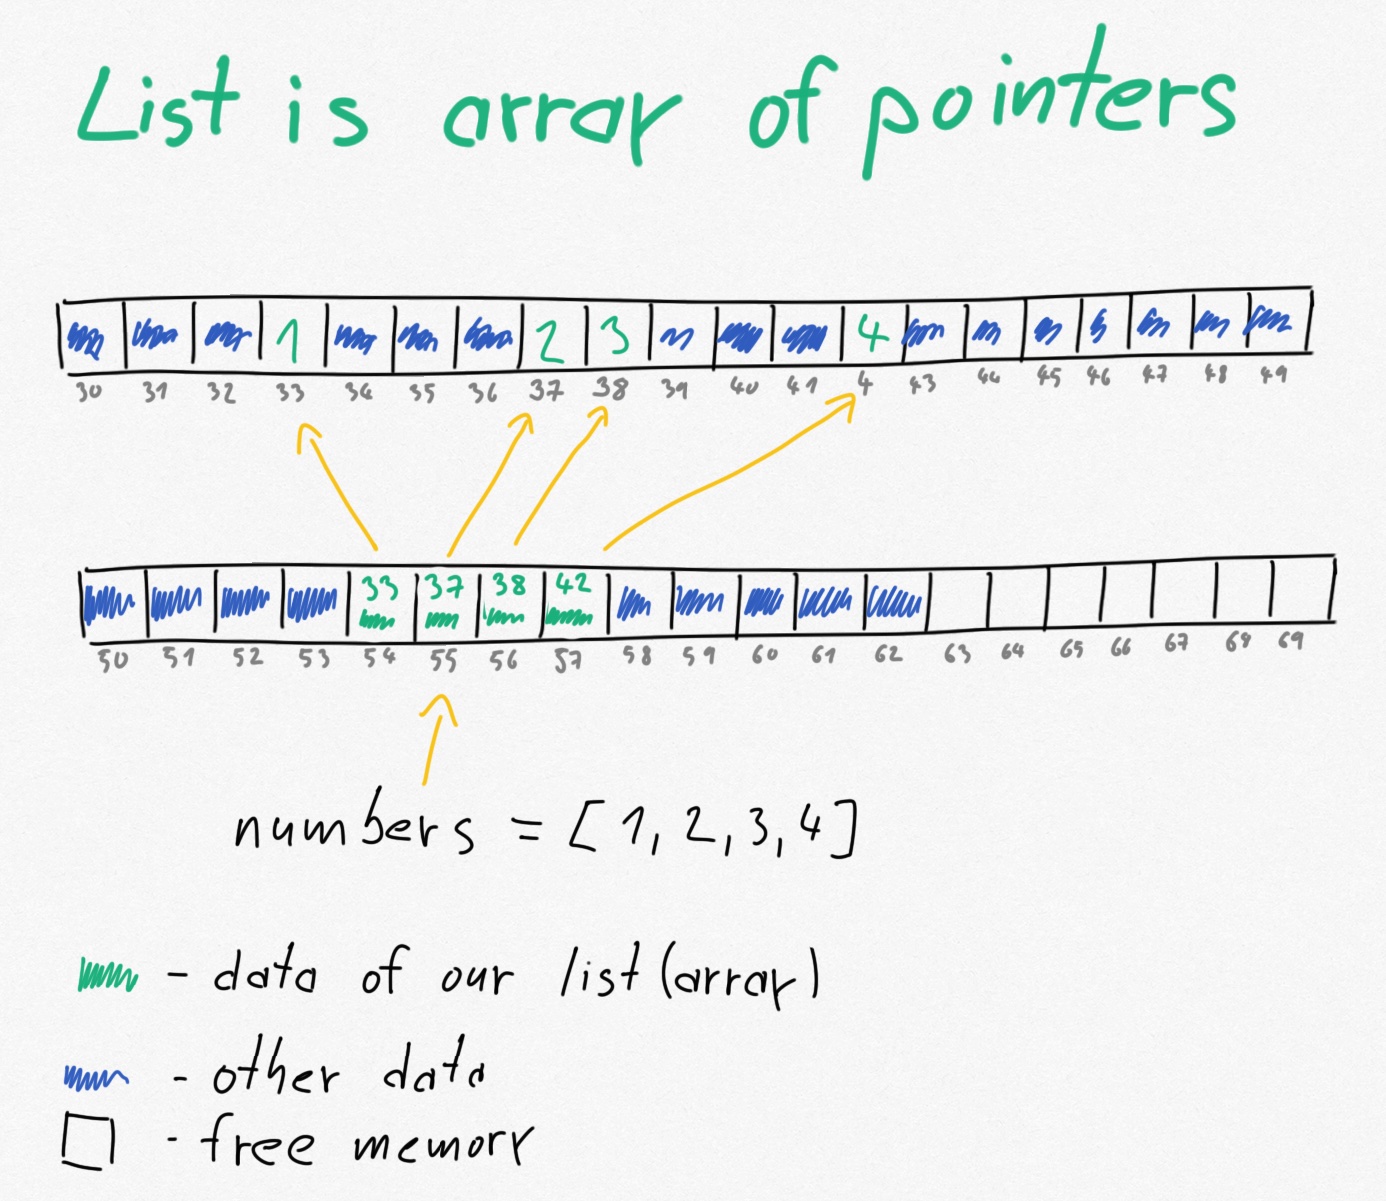 List is array of pointers
1 2 3 4
30 31 32 33 34 35 36 37 38 39 40 41 4 43 44 45 46 47 48 49
33 37 38 42
50 51 52 53 54 55 56 57 58 59 60 61 62 63 64 65 66 67 68 69
numbers = [1, 2, 3, 4]
- data of our list (array)
- other data
- free memory